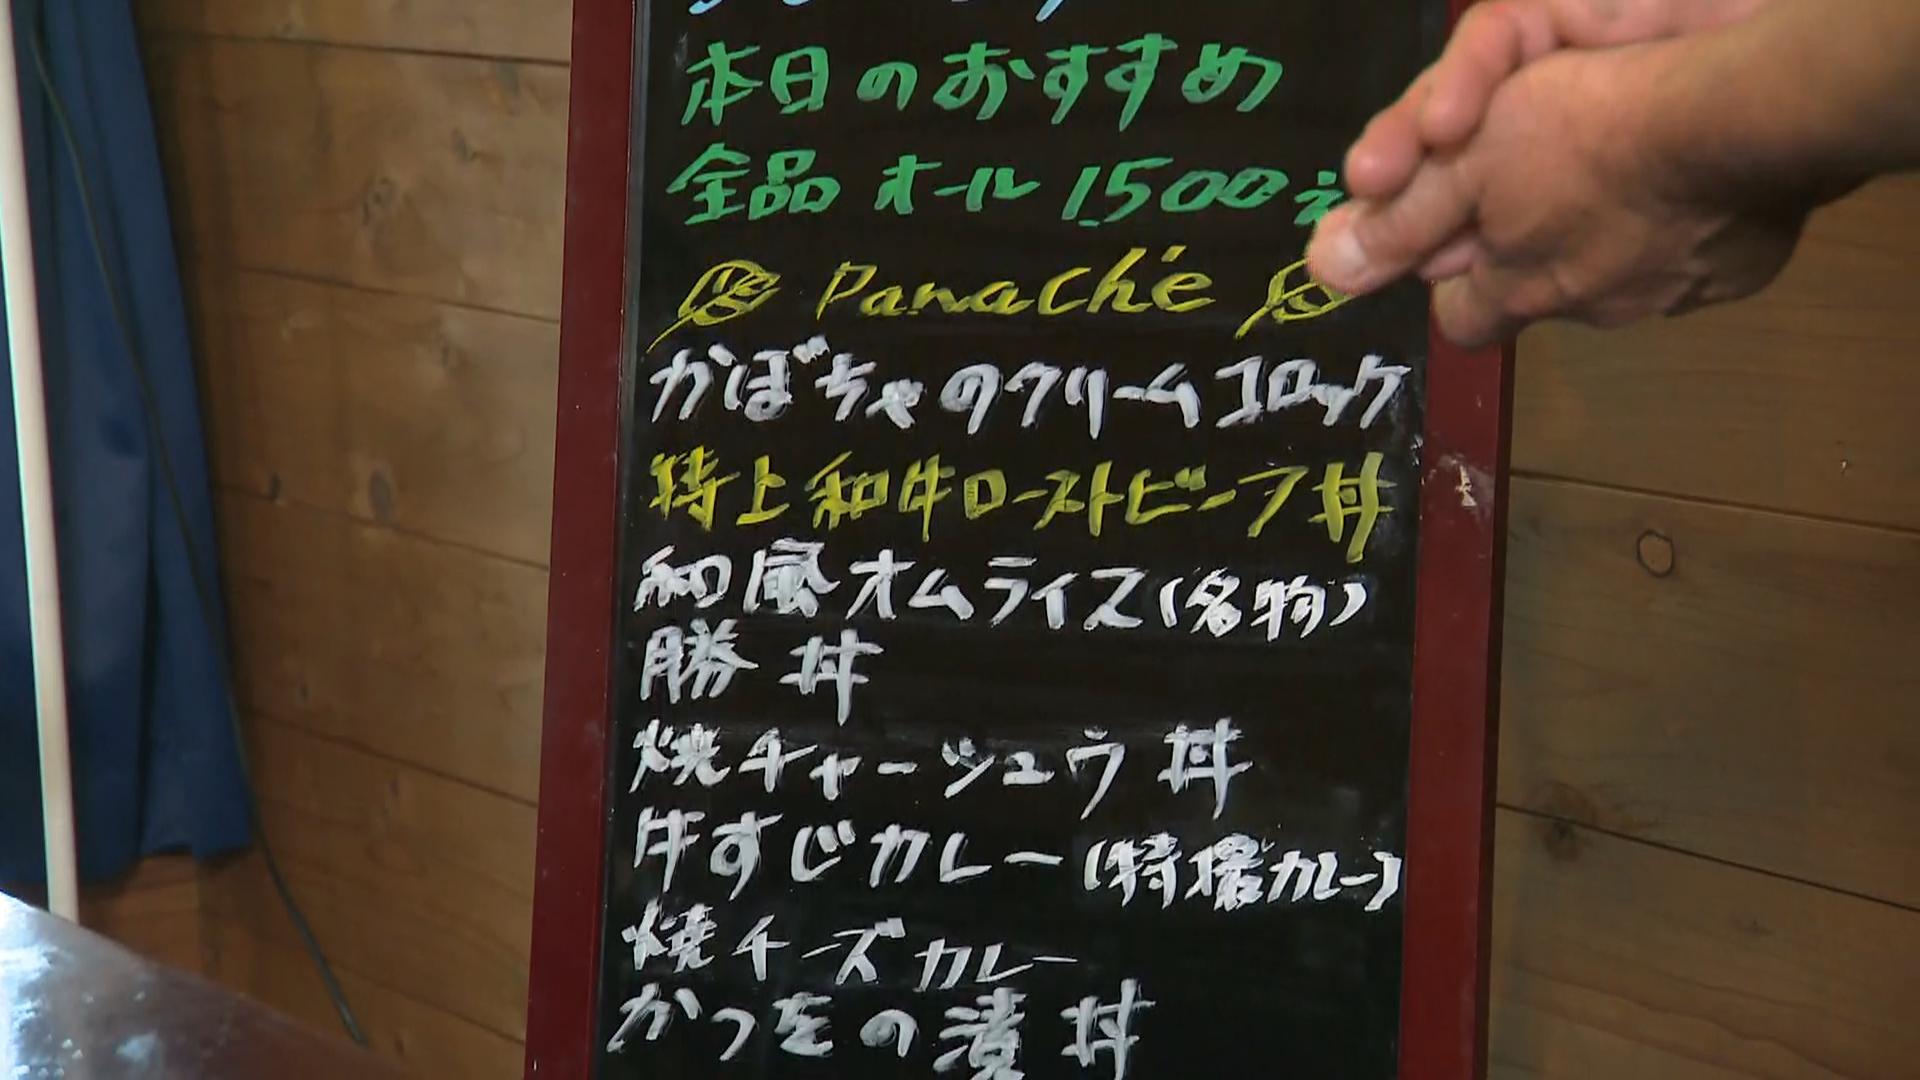 本日のおすすめ
全品 オール 1500
Panaché
かぼちゃのクリームコロッケ
特上和牛ローストビーフ丼
和風オムライス(名物)
勝丼
焼チャーシュウ丼
牛すじカレー(特撰カレー)
焼チーズカレー
かつをの漬丼